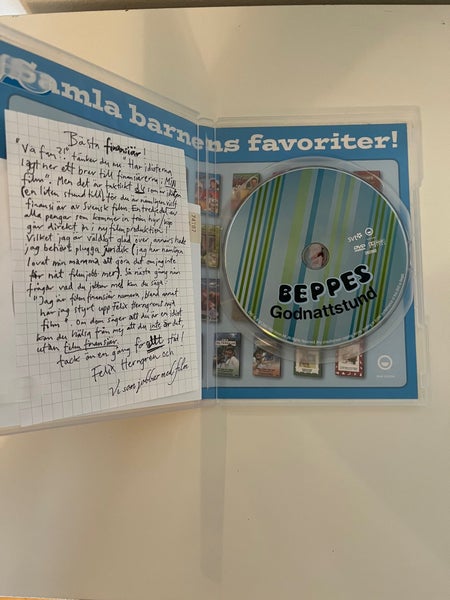 Samla barnens favoriter!
Bästa finansiär!
"Va fan?!" tänker du nu "Har idioterna
lagt ner ett brev till finansiärerna i MIN
film". Men det är faktiskt du som är idioten
(en liten stund till) för du är nämligen visst
finansiär av Svensk film. En tredjedel av
alla pengar som kommer in från hyr/köp
går direkt in i ny filmproduktion!
Vilket jag är väldigt glad över, annars hade
jag behövt plugga juridik (jag har nämligen
lovat min mamma att göra det om jag inte
får nåt filmjobb mer). Så nästa gång nån
frågar vad du jobbar med kan du säga:
"Jag är filmfinansiär numera, bland annat
har jag styrt upp Felix Herngrens nya
film". Om dom säger att du är en idiot
kan du hälsa från mig att du inte är det,
utan filmfinansiär.
tack än en gång för allt stöd!
Felix Herngren och
Vi som jobbar med film
svt
DVD
BEPPES
Godnattstund